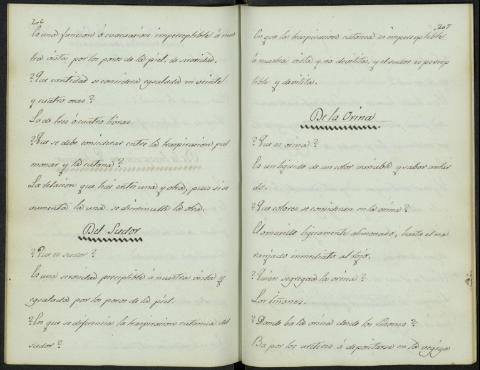 206
Es una funcion ó evacuacion imperceptible á nues
tra vista por los poros de la piel, de serosidad.
¿Que cantidad se considera segregada en veinte
y cuatro oras?
La de tres ó cuatro libras.
¿Que se debe considerar entre la traspiracion pul
monar y la cutanea?
La relacion que hay entre una y otra, pues si se
aumenta la una se disminulle la otra.
Del Sudor
¿Que es sudor?
Es una serosidad perceptible á nuestra vista y
segregada por los poros de la piel.
¿En que se diferencia la traspiracion cutanea del
sudor?
207
En que la traspiracion cutanea es imperceptible
á nuestra vista y no devilita, y el sudor es percep
tible y devilita.
De la Orina
¿Que es orina?
Es un liquido de un color variable y sabor
¿Que colores se consideran en la orina?
El amarillo ligeramente alimonado, hasta el na
ranjado inmediato al rojo.
¿Quien segrega la orina?
Los riñones.
¿Donde ba la orina desde los riñones?
Ba por los uréteres á depositarse en la vegiga